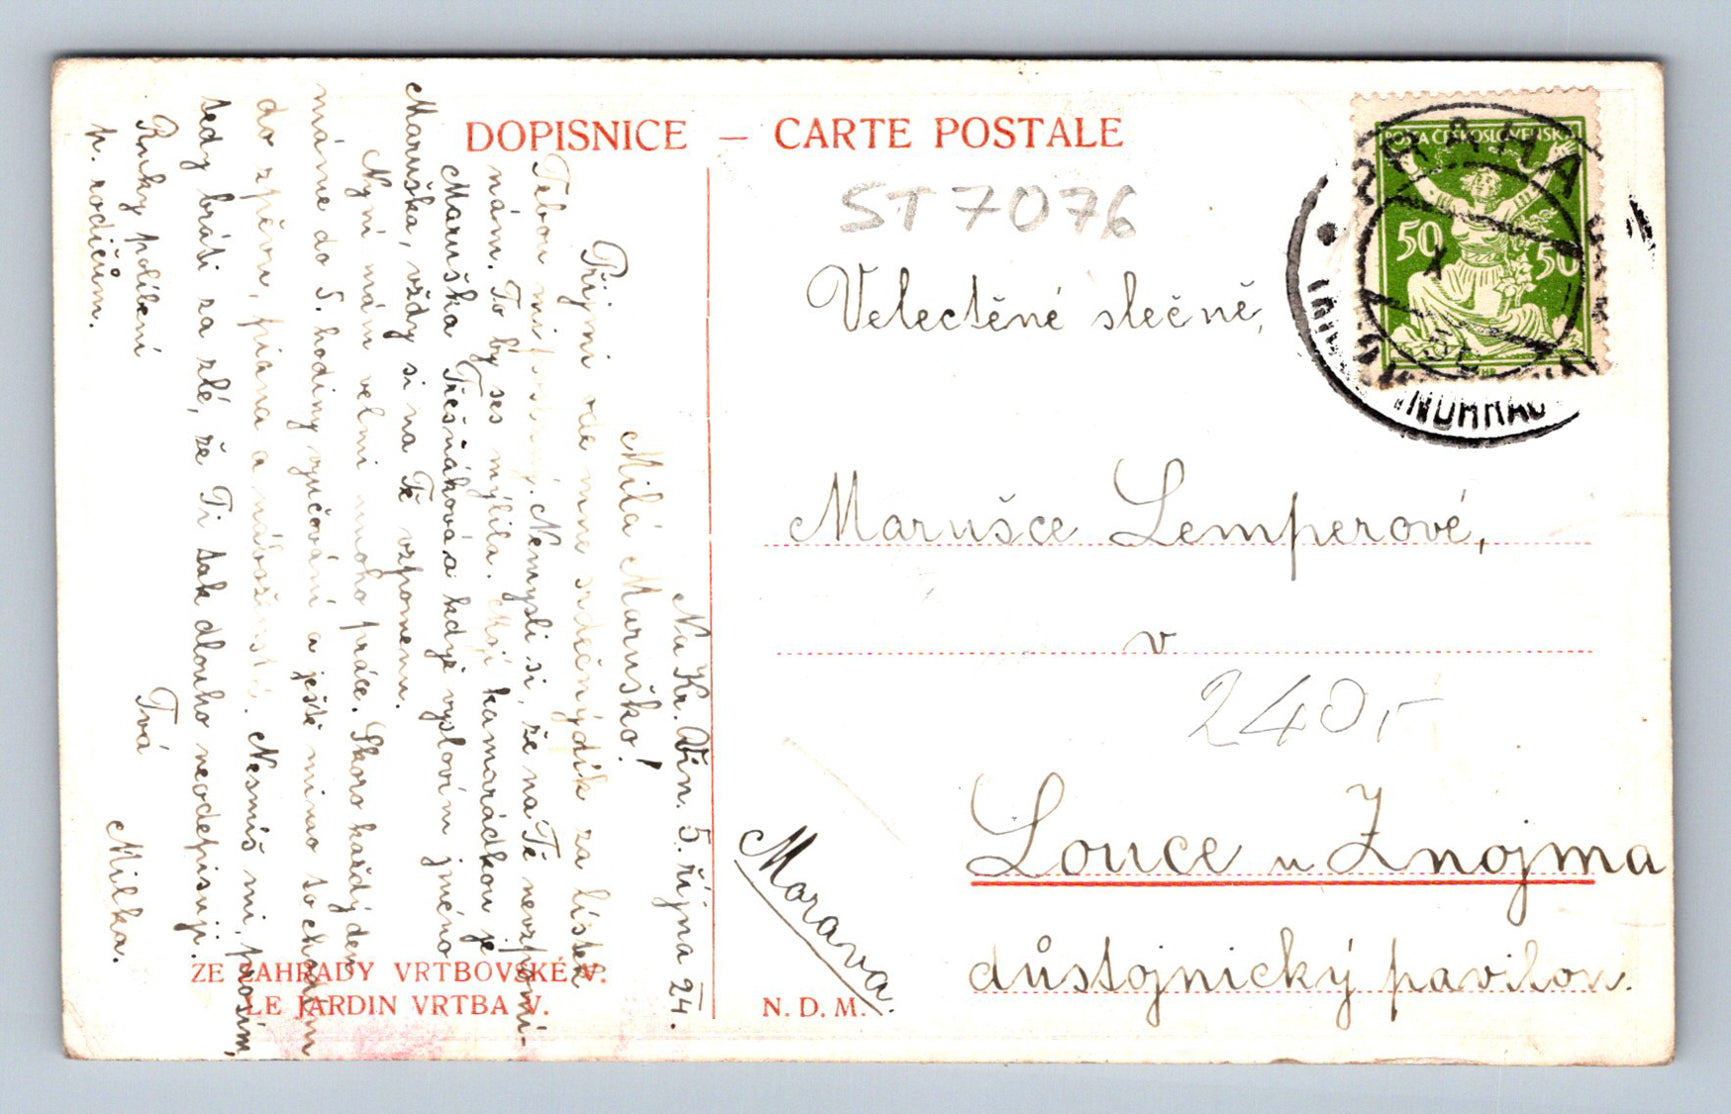 DOPISNICE – CARTE POSTALE
Na Kr. Vin. 5. října 24.
Milá Maruško!
Přijmi ode mne srdečný dík za lístek
Tebou mi poslaný. Nemysli si, že na Tě nevzpomí-
nám. To by ses mýlila. Mojí kamarádkou je
Maruška Třešňáková a když vyslovím jméno
Maruška, vždy si na Tě vzpomenu.
Nyní mám velmi mnoho práce. Skoro každý den
máme do 5. hodiny vyučování a ještě mimo to chodím
do zpěvu, piana a náboženství. Nesmíš mi, prosím,
tedy bráti za zlé, že Ti tak dlouho neodepisuji.
Ruky políbení
Tvá
p. rodičům.
Milka.
ZE ZAHRADY VRTBOVSKÉ V.
LE JARDIN VRTBA V.
N. D. M.
ST 7076
POŠTA ČESKOSLOVENSKÁ
50 50
PRAHA
Velectěné slečně,
Marušce Lemperové,
v
240,-
Louce u Znojma
důstojnický pavilon.
Morava.